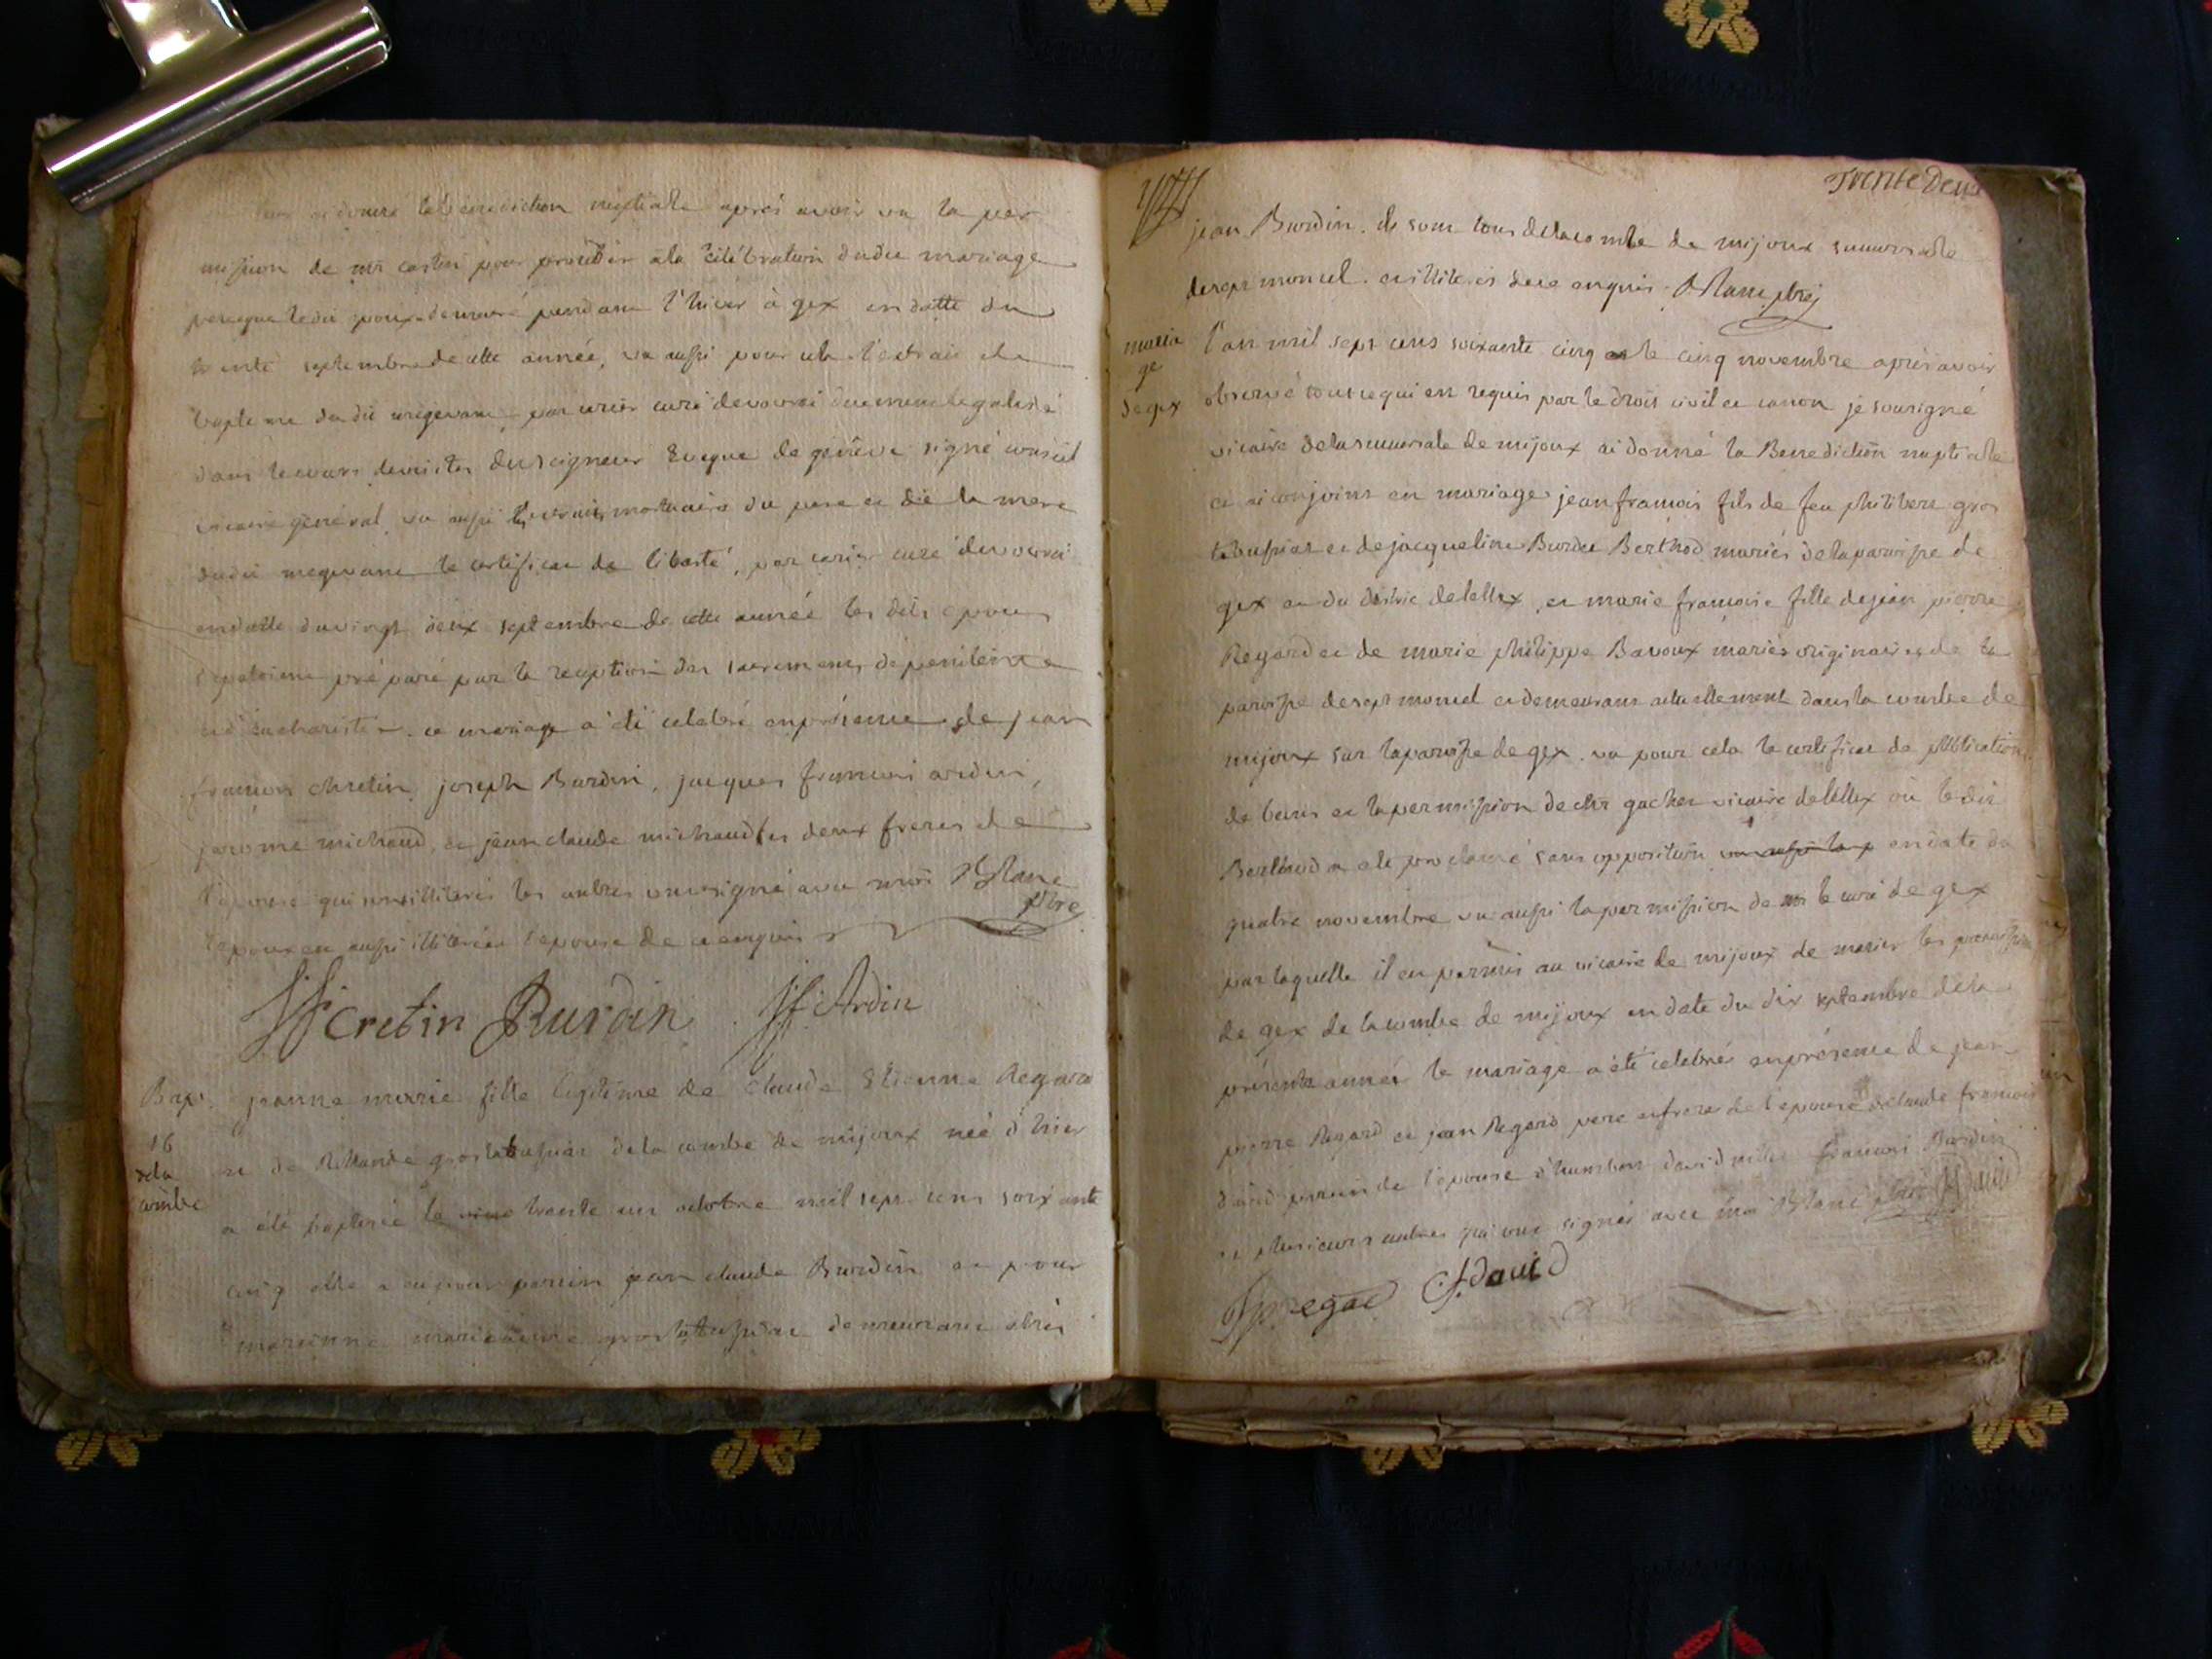 ai donné la benediction nuptiale aprés avoir vu la per
mission de mr castin pour proceder a la célébration dudit mariage
parceque ledit epoux demeuré pendant l'hiver à gex en datte du
trente septembre de cette année, vu aussi pour cela l'extrait de
bapteme du dit megevane par curé duement legalisé
dans le cours du seigneur Eveque de genève signé
vicaire général vu aussi mortuaire du pere et de la mere
dudit megevane le certificat de liberté, par curé
en datte du vingt deux septembre de cette année les dits epoux
préparé par la reception des sacremens de penitence
et d'eucharistie. ce mariage a été celebré en présence de jean
francois chretin, joseph Burdin, jacques francois ardin,
jerome michaud, et jean claude michaud les deux freres de
l'épouse qui sont illiterés les autres ont signé avec moi Blanc
ptre
l'epoux est aussi illiteré et l'epouse de ce enquis
JF cretin Burdin JF Ardin
Bap. jeanne marie fille legitime de claude Etienne Regard
16 et de Rollande grostabussiat de la combe de mijoux neé d'hier
dela
combe
a été baptisée le trente un octobre mil sept cens soixante
cinq elle a eu pour parein jean claude Burdin et pour
mareinne grostabussiat demeurant
Trente Deux
jean Burdin. ils sont tous de la combe de mijoux succursale
de sept moncel. et illiterés de ce enquis. Blanc ptre
maria
ge
de gex
l'an mil sept cens soixante cinq et le cinq novembre aprés avoir
observé tout ce qui est requis par le droit civil et canon je sousigné
vicaire de la succursale de mijoux ai donné la Benediction nuptialle
et ai conjoint en mariage jean francois fils de feu philibert gros
tabussiat et de jacqueline Burdet Berthod mariés de la paroisse de
gex et du distric de lellex, et marie francoise fille de jean pierre
Regard et de marie philippe Bavoux mariés originaires de la
paroisse de sept moncel et demeurans actuellement dans la combe de
mijoux sur la paroisse de gex. vu pour cela le certificat de publication
de bans et la permission de mr gachet vicaire de lellex où le dit
Berthod a eté proclamé sans opposition vu aussi la p en date du
quatre novembre vu aussi la permission de mr le curé de gex
par laquelle il est permis au vicaire de mijoux de marier les paroissiens
de gex de la combe de mijoux en date du dix septembre de la
présente année le mariage a été celebrés en présence de jean
pierre Regard et jean Regard pere et frere de l'epouse de claude francois
david parein de l'epouse d'humbert david francois Burdin
et plusieurs autres qui ont signés avec moi Blanc ptre David
Jp regad Cf. david